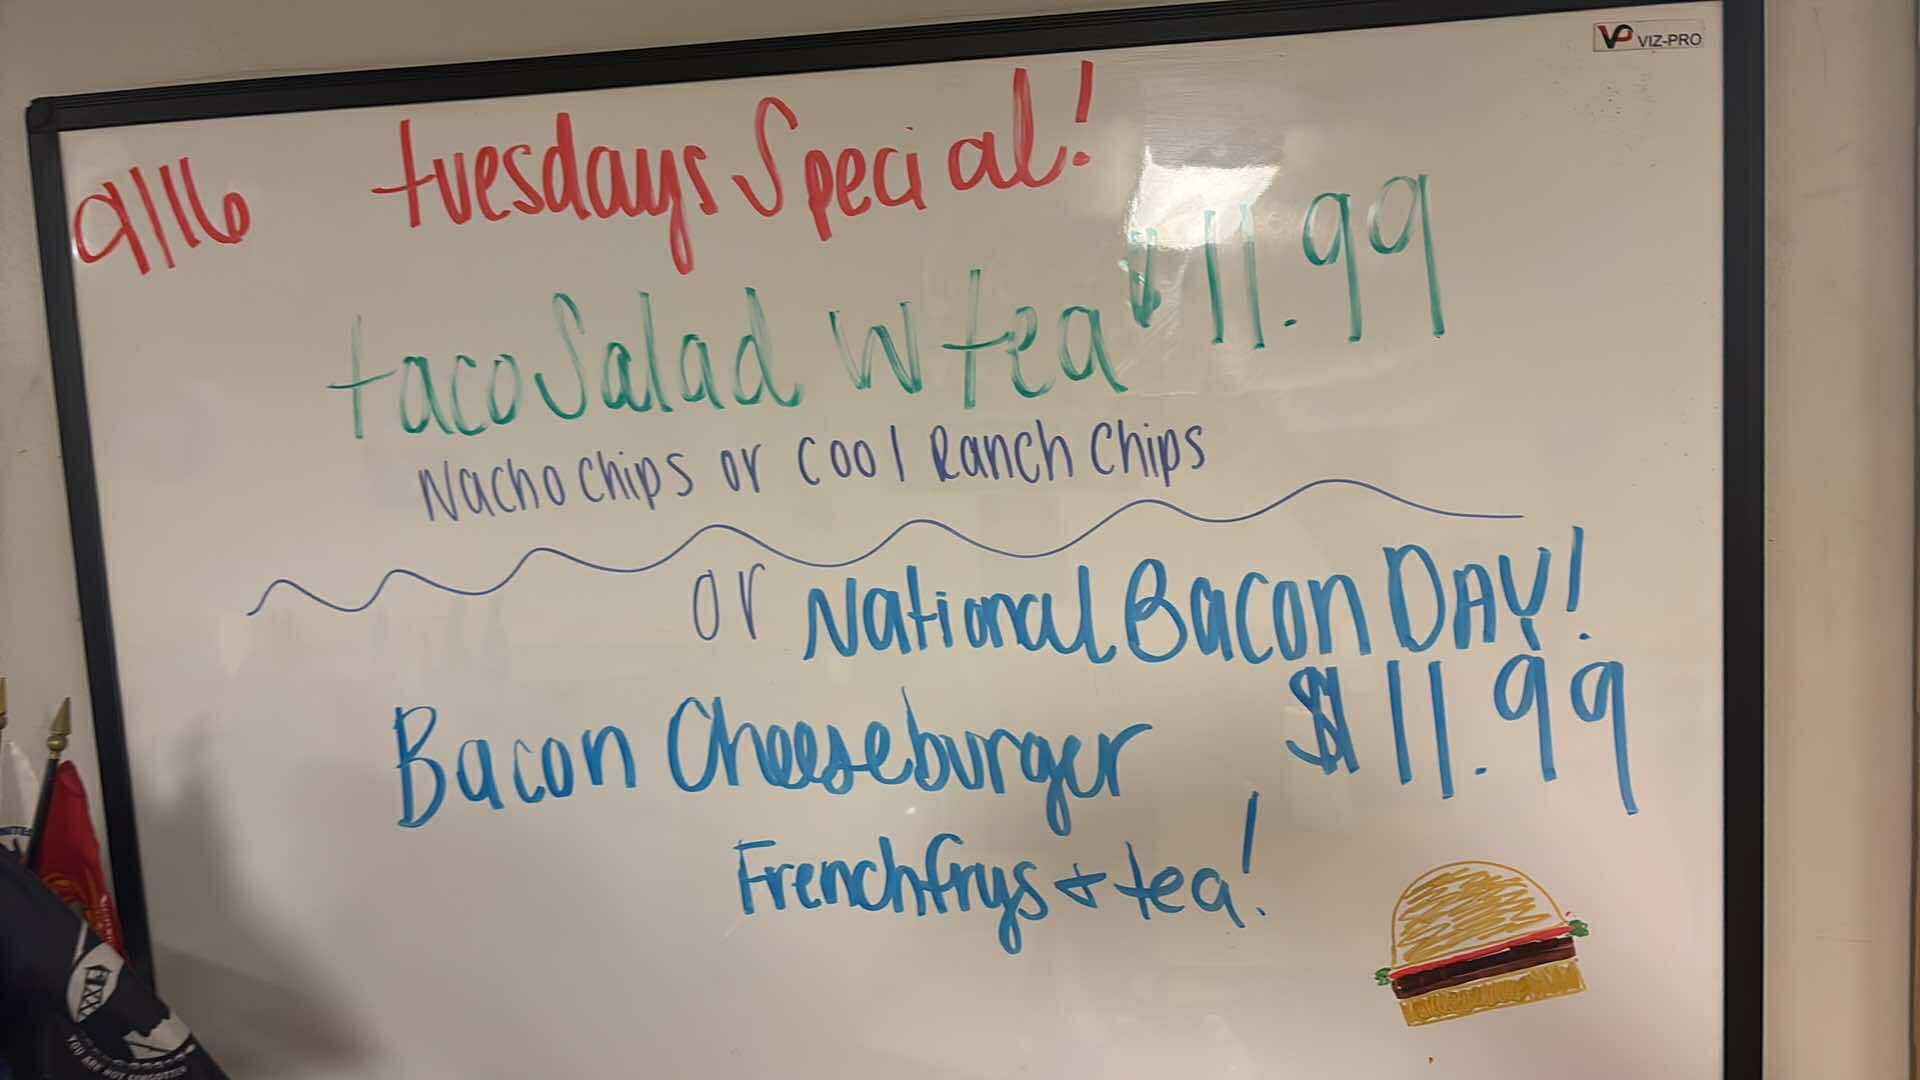 VP VIZ-PRO
9/16 tuesdays Special!
taco Salad w tea $11.99
Nacho chips or Cool Ranch Chips
or National Bacon DAY!
Bacon Cheeseburger $11.99
Frenchfrys & tea!
YOU ARE NOT FORGOTTEN